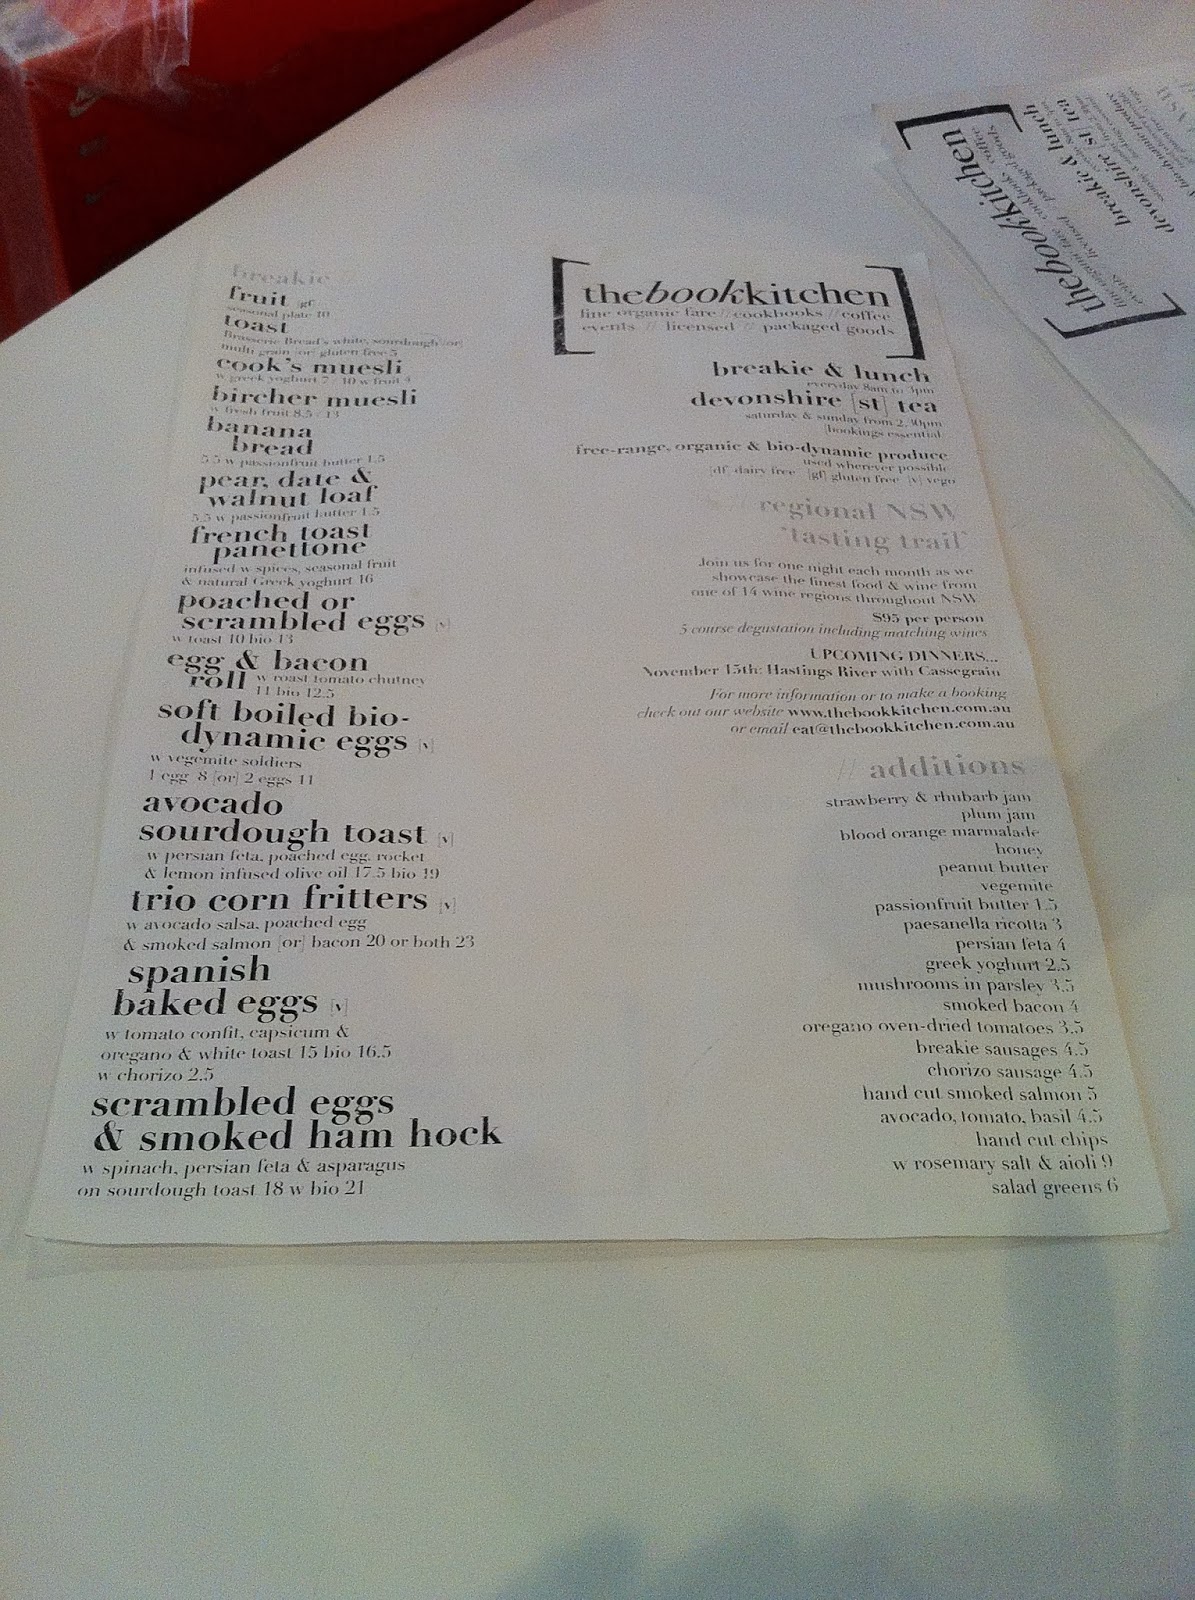 breakie
fruit [gf]
seasonal plate 10
toast
Brasserie Bread's white, sourdough [or]
multi grain [or] gluten free 5
cook's muesli
w greek yoghurt 7 / 10 w fruit
bircher muesli
w fresh fruit 8.5 / 13
banana
bread
5.5 w passionfruit butter 1.5
pear, date &
walnut loaf
5.5 w passionfruit butter 1.5
french toast
panettone
infused w spices, seasonal fruit
& natural Greek yoghurt 16
poached or
scrambled eggs [v]
w toast 10 bio 13
egg & bacon
roll w roast tomato chutney
11 bio 12.5
soft boiled bio-
dynamic eggs [v]
w vegemite soldiers
1 egg 8 [or] 2 eggs 11
avocado
sourdough toast [v]
w persian feta, poached egg, rocket
& lemon infused olive oil 17.5 bio 19
trio corn fritters [v]
w avocado salsa, poached egg
& smoked salmon [or] bacon 20 or both 23
spanish
baked eggs [v]
w tomato confit, capsicum &
oregano & white toast 15 bio 16.5
w chorizo 2.5
scrambled eggs
& smoked ham hock
w spinach, persian feta & asparagus
on sourdough toast 18 w bio 21
[thebookkitchen]
fine organic fare // cookbooks // coffee
events // licensed // packaged goods
breakie & lunch
everyday 8am to 3pm
devonshire [st] tea
saturday & sunday from 2.30pm
[bookings essential]
free-range, organic & bio-dynamic produce
used wherever possible
[df] dairy free [gf] gluten free [v] vego
regional NSW
'tasting trail'
Join us for one night each month as we
showcase the finest food & wine from
one of 14 wine regions throughout NSW
$95 per person
5 course degustation including matching wines
UPCOMING DINNERS...
November 15th: Hastings River with Cassegrain
For more information or to make a booking
check out our website www.thebookkitchen.com.au
or email cat@thebookkitchen.com.au
// additions
strawberry & rhubarb jam
plum jam
blood orange marmalade
honey
peanut butter
vegemite
passionfruit butter 1.5
paesanella ricotta 3
persian feta 4
greek yoghurt 2.5
mushrooms in parsley 3.5
smoked bacon 4
oregano oven-dried tomatoes 3.5
breakie sausages 4.5
chorizo sausage 4.5
hand cut smoked salmon 5
avocado, tomato, basil 4.5
hand cut chips
w rosemary salt & aioli 9
salad greens 6
[thebookkitchen]
fine organic fare cookbooks coffee
events licensed packaged goods
breakie & lunch
devonshire [st] tea